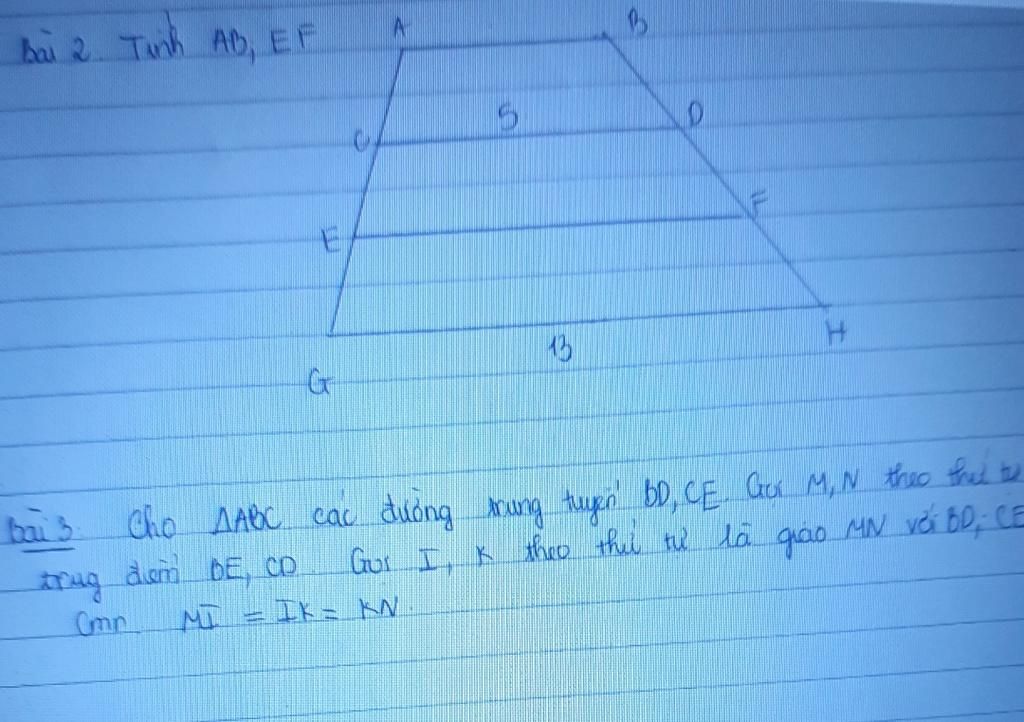 Bài 2. Tính AB, EF
A
B
5
C
D
E
F
13
H
G
Bài 3. Cho ΔABC các đường trung tuyến BD, CE. Gọi M, N theo thứ tự
trug điểm BE, CD. Gọi I, K theo thứ tự là giao MN với BD, CE
Cmr MI = IK = KN.